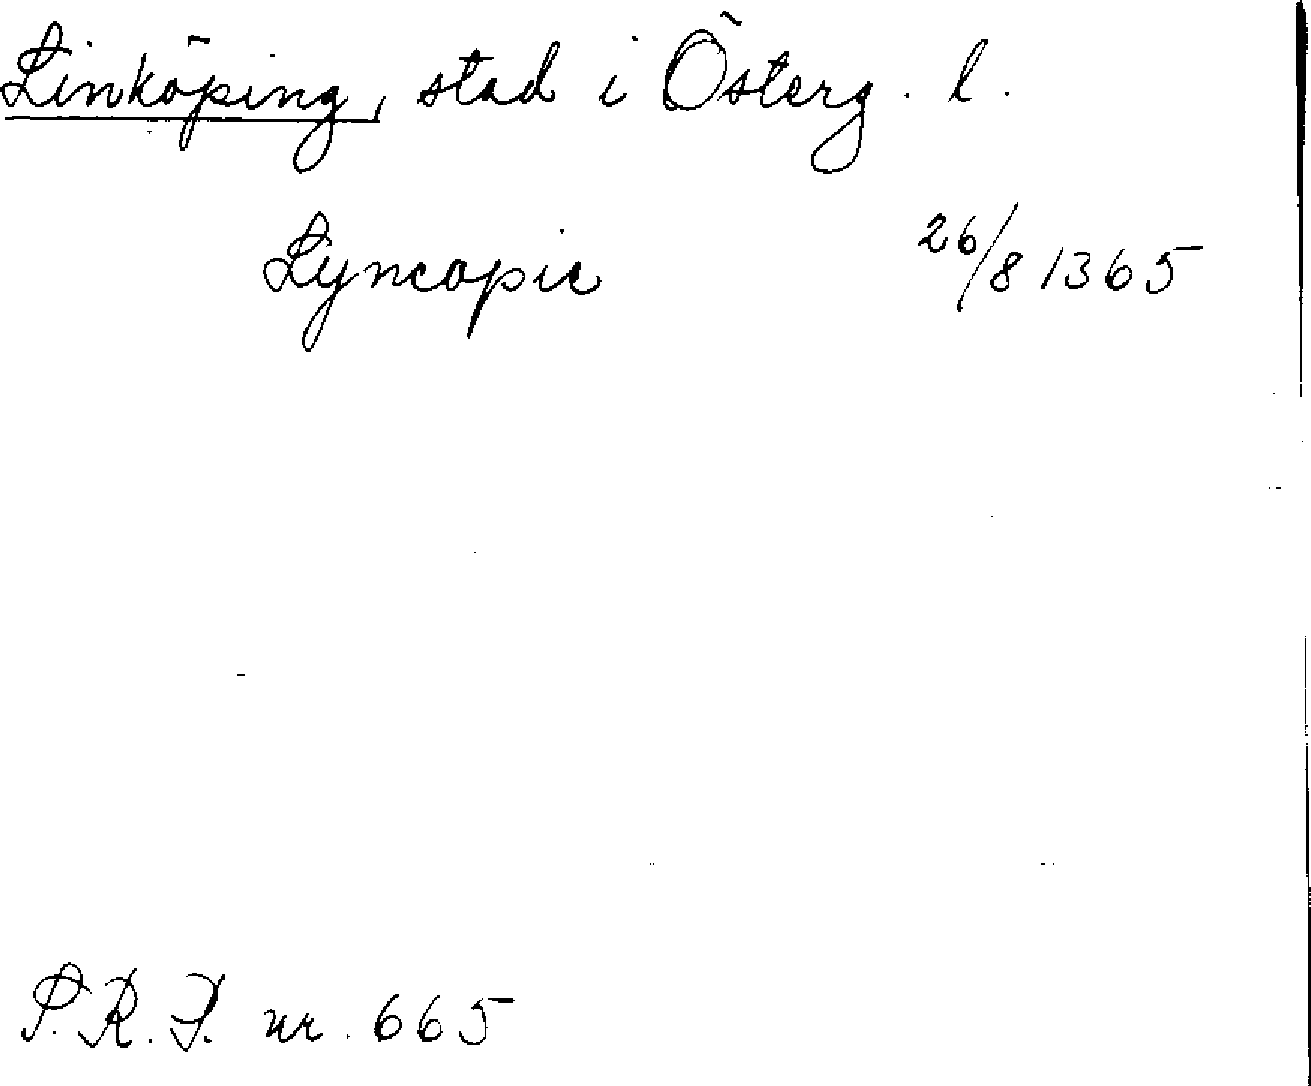 Linköping, stad i Österg. l.
Lyncopie 26/8 1365
S.R.P. nr. 665